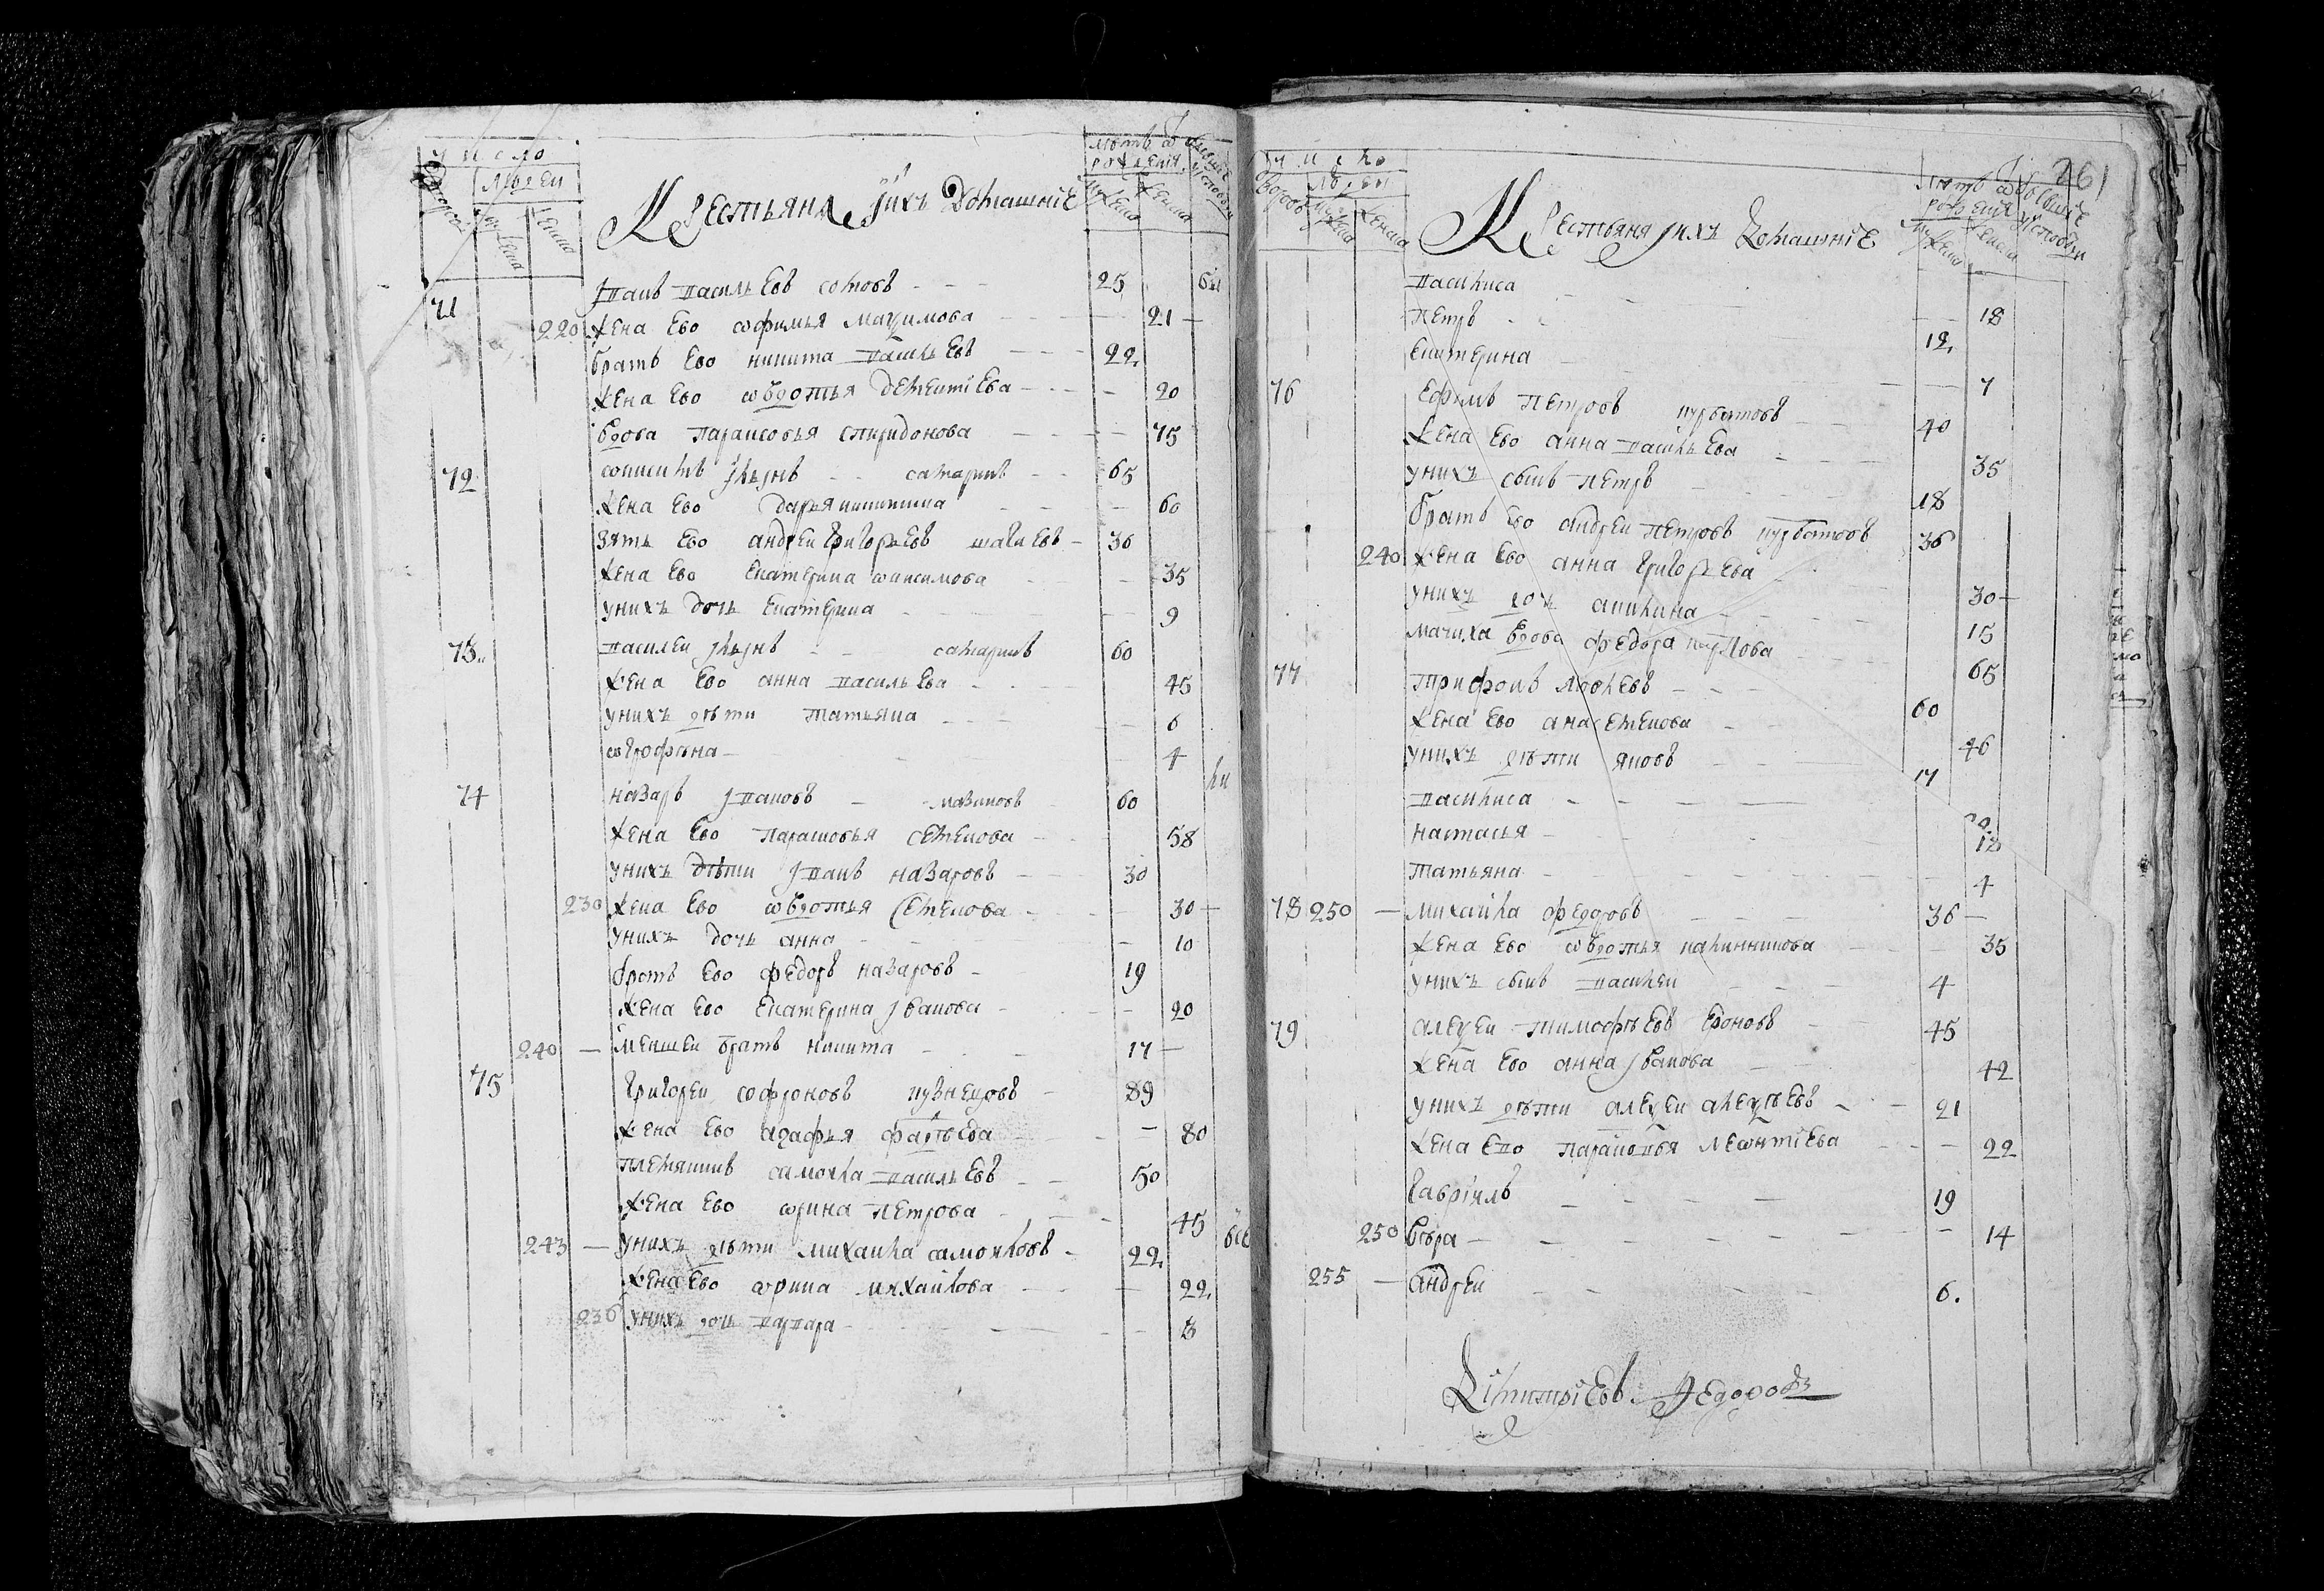 число
людей
дворов
мужеска
женска
Крестьяня и их домашние
летъ от рождения
мужеска
женска
бывшие у исповеди
71 Иванъ Васильевъ сомовъ - - - 25 бы
220 жена ево офимья ма?имова - - 21 -
братъ ево никита Васильевъ - - - 22
жена ево овдотья дементиева - - - 20
вдова парасковья спиридонова - - - 75
72 онисимъ ... самаринъ - - 65
жена ево дарья никитина - 60
зять ево андреи григорьевъ шагиевъ - 36
жена ево екатерина максимова - 35
у нихъ дочь екатерина - 9
73 Василеи ... самаринъ 60
жена ево анна Васильева - - 45
у нихъ дети татьяна - - - 6
митрофана - 4
74 назаръ Ивановъ - мазиновъ 60
жена ево парасковья семенова - - 58
у нихъ дети Иванъ назаровъ - - 30
230 жена ево овдотья семенова - - 30 -
у нихъ дочь анна - - - 10
братъ ево федоръ назаровъ - 19
жена ево екатерина иванова - - 20
240 - меншеи братъ никита - - 17 -
75 григореи софроновъ кузнецовъ - 89
жена ево агафья фадеева - - 80
племянникъ самоила Васильевъ - - 50
жена ево орина петрова - - 45
243 - у нихъ дети михаила самоиловъ - 22 все
жена ево орина михаилова - - 22
236 у нихъ дочь варвара - - - 8
261
число
людей
дворовъ
мужеска
женска
Крестьяня и их домашние
летъ от рождения
мужеска
женска
бывшие у исповеди
Василиса - - - 18
петръ - - - 12
екатерина - - 7
76 ефимъ петровъ курбатовъ - 40
жена ево анна Васильева - - 35
у нихъ сынъ петръ - - 18
братъ ево андреи петровъ курбатовъ 36
240 жена ево анна григорьева - 30 -
у нихъ дочь акилина - - - 15
мачиха вдова федора карпова - - 65
77 трифонъ яковлевъ - - - 60
жена ево ана семенова - 46
у нихъ дети яковъ - - 17
Василиса - - -
настасья - - - 12
татьяна - - - 4
78 250 - михаила федоровъ - - 36 -
жена ево овдотья калинникова - - 35
у нихъ сынъ Василеи - - 4
79 алексеи тимофеевъ еоновъ - 45
жена ево анна иванова - - 42
у нихъ дети алексеи алексеевъ - - 21
жена ево парасковья леонтиева - - - 22
гавриилъ - - - - 19
250 вера - - - - - 14
255 - андреи - - - 6.
Димитриевъ Федоровъ